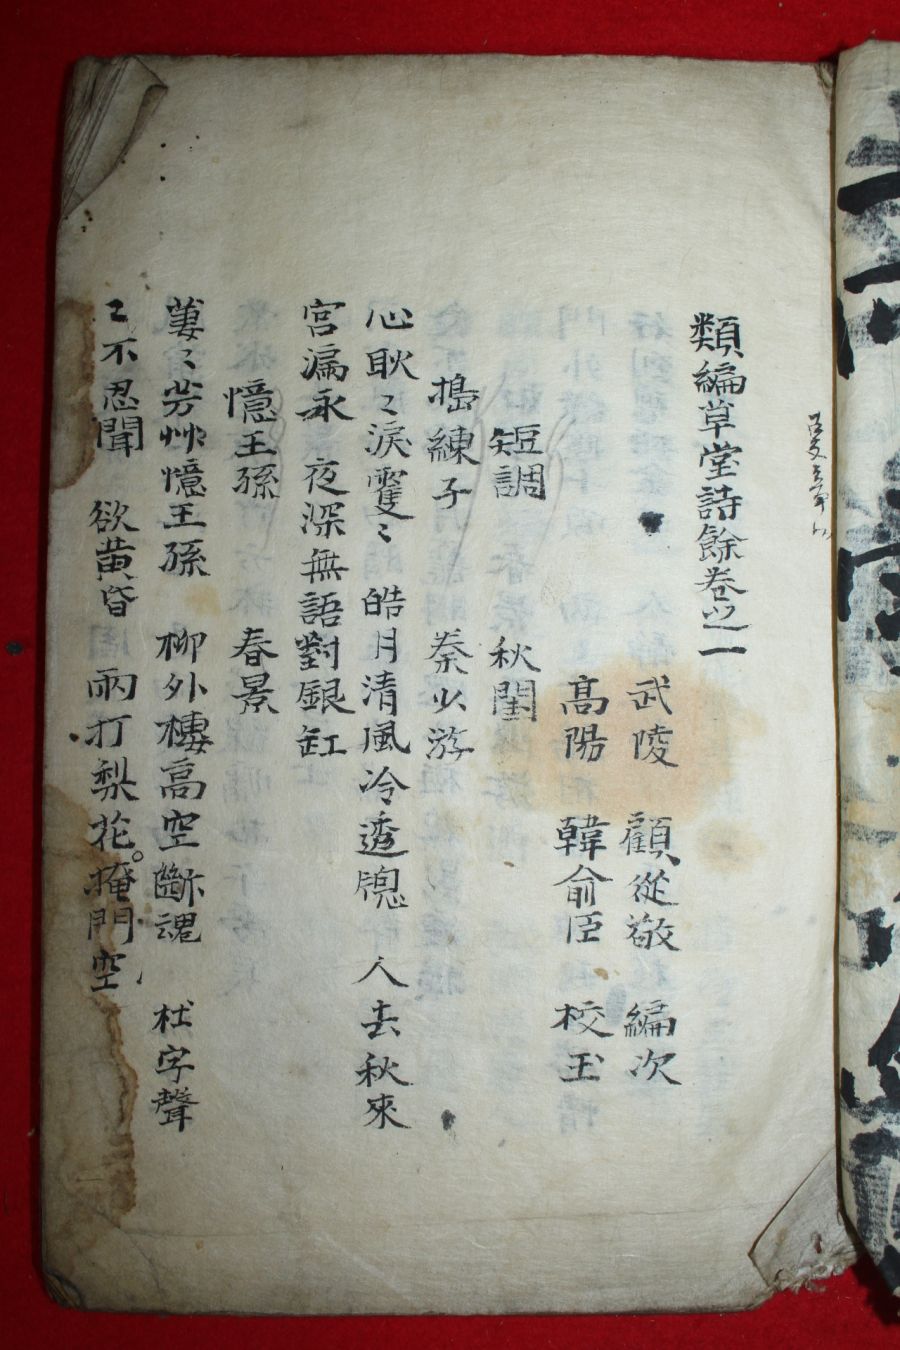 類編草堂詩餘卷之一
武陵 顧從敬 編次
高陽 韓俞臣 校㺬
短調 秋閨
搗練子 秦少游
心耿〻淚雙〻 皓月清風冷透牕 人去秋來
宮漏永 夜深無語對銀缸
憶王孫 春景
萋〻芳艸憶王孫 柳外樓高空斷魂 杜宇聲
〻不忍聞 欲黃昏 雨打梨花掩門空